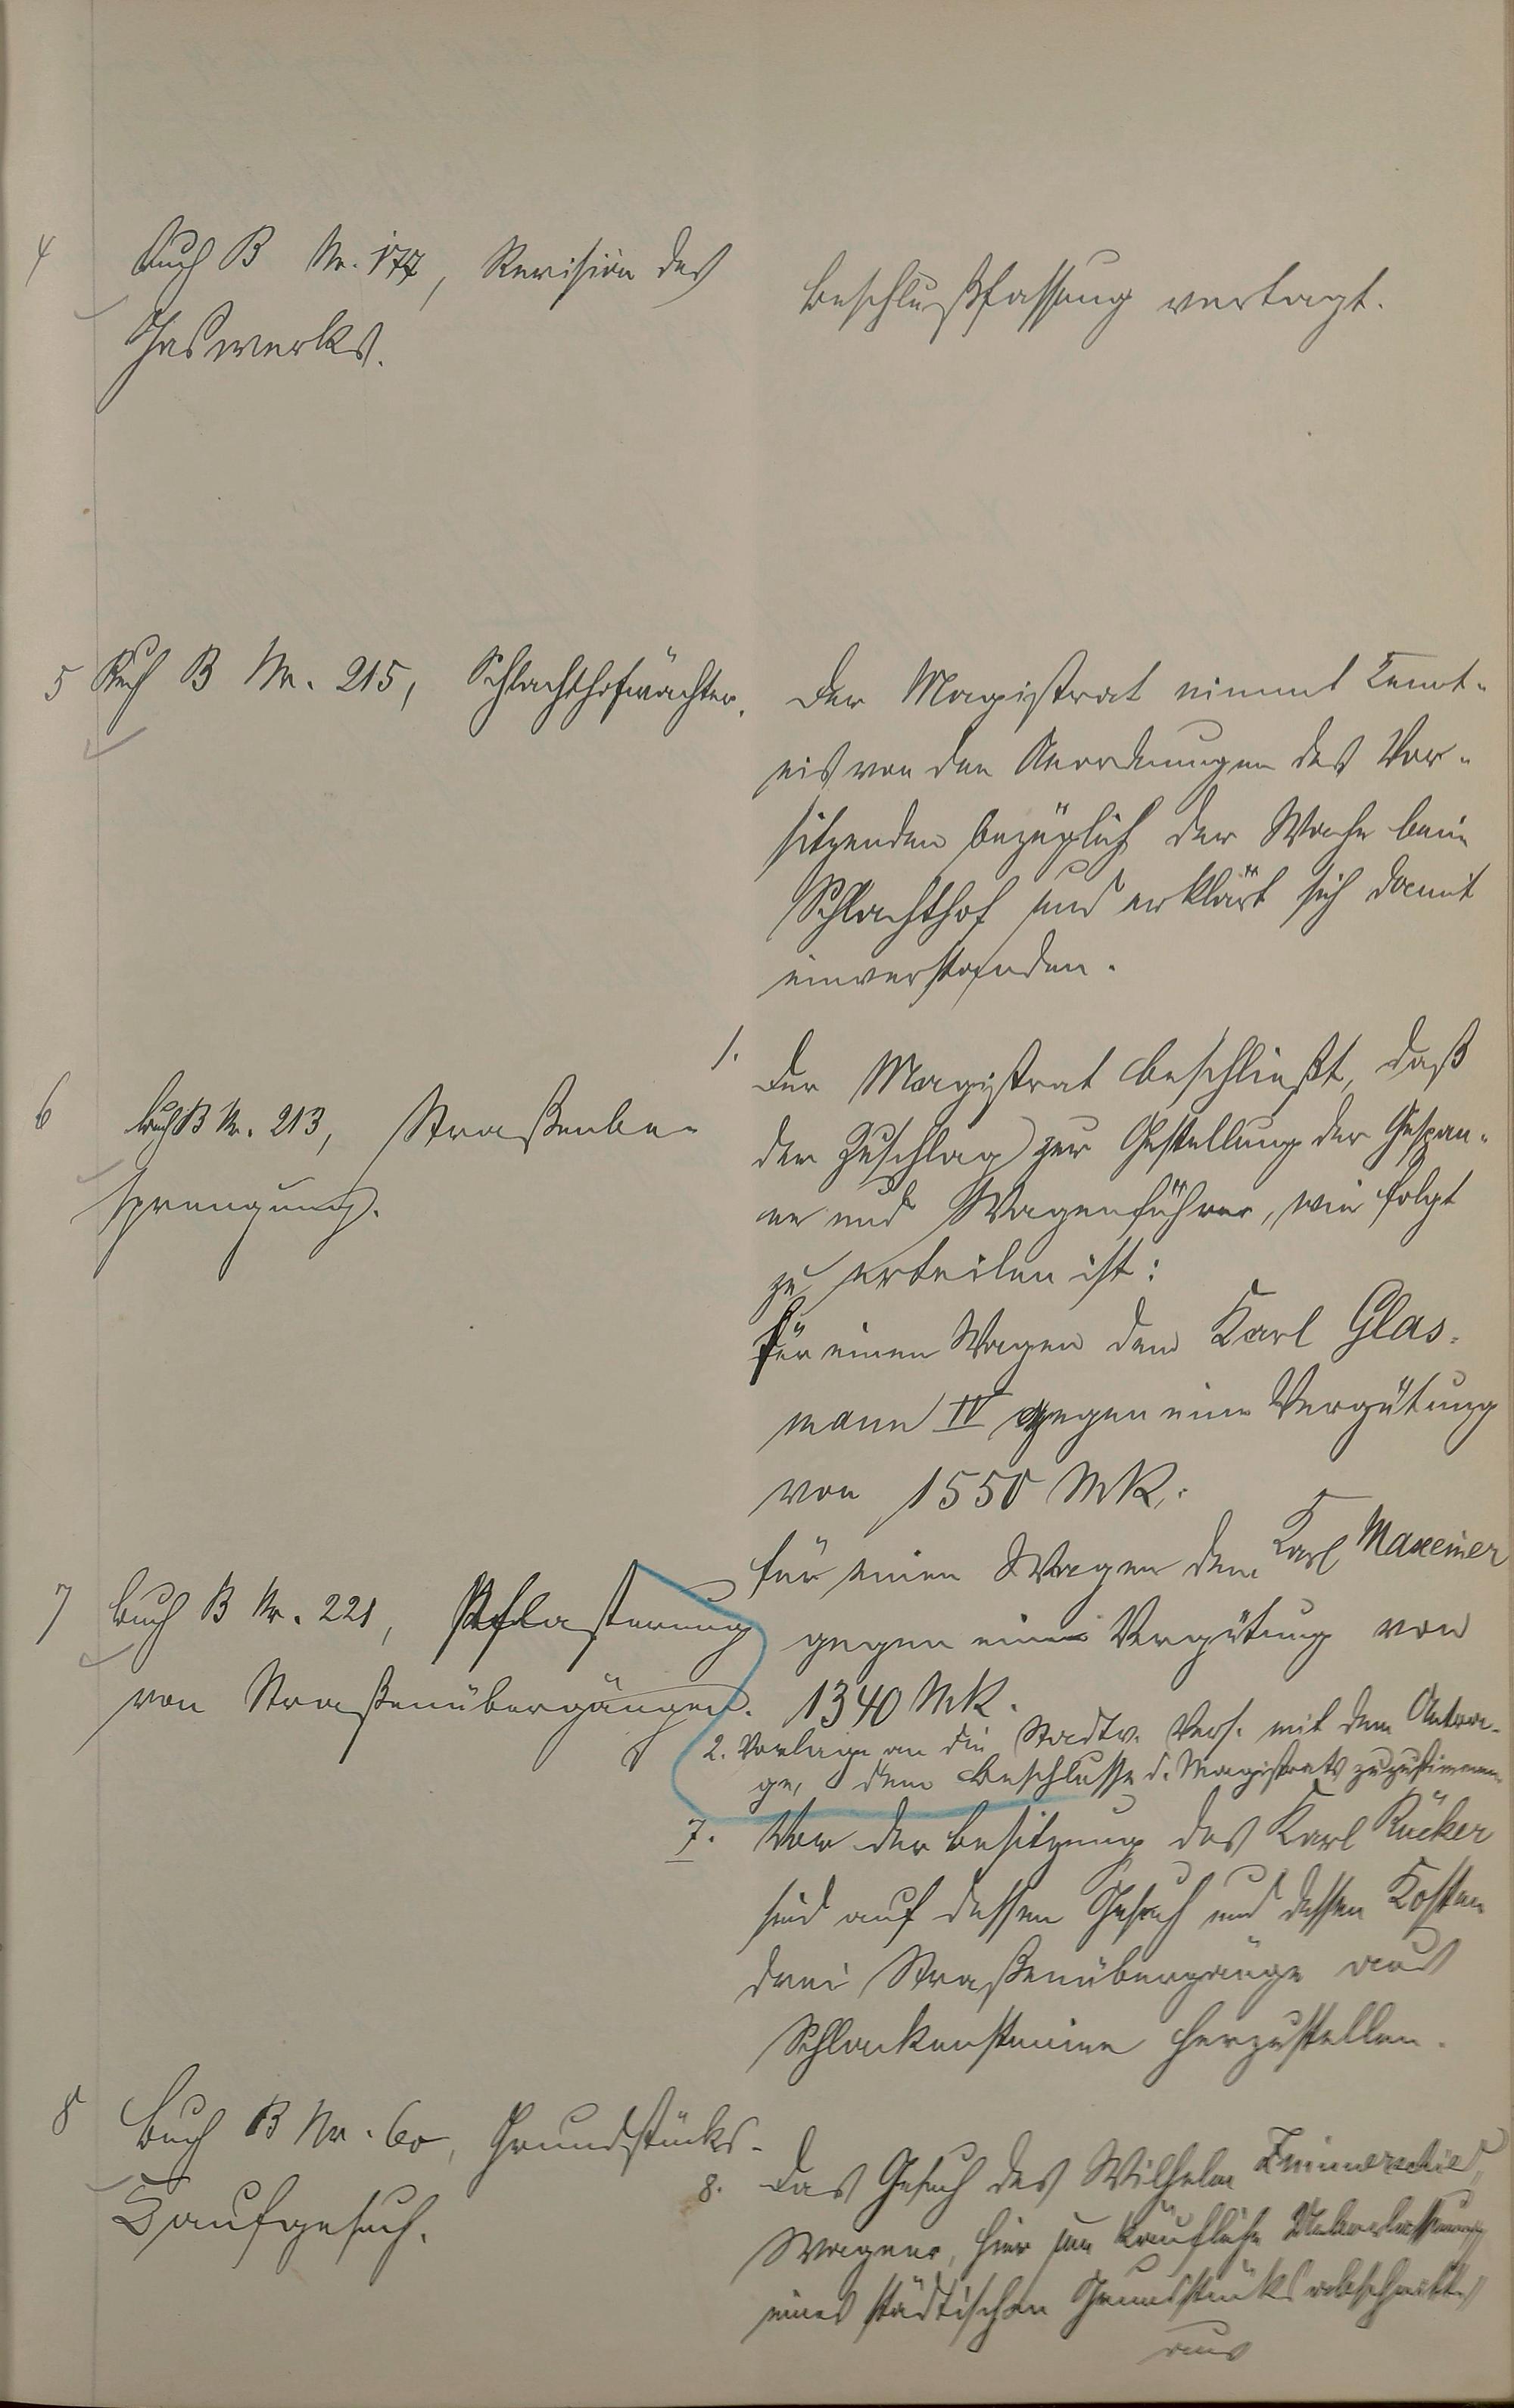 4 Buch B Nr. 177, Revision des
Gaswerks.
Beschlußfassung vertagt.
5 Buch B Nr. 215, Schlachthofwächter.
Der Magistrat nimmt Kennt-
nis von den Anordnungen des Vor-
sitzenden bezüglich der Wache beim
Schlachthof und erklärt sich damit
einverstanden.
6 Buch B Nr. 213, Straßenbe-
sprengung.
1. Der Magistrat beschließt, daß
der Zuschlag zur Gestellung der Gespan-
ne und Wagenführer, wie folgt
zu erteilen ist:
Für einen Wagen dem Karl Glas-
mann IV gegen eine Vergütung
von 1550 Mk.
für einen Wagen dem Karl Maxeiner
gegen eine Vergütung von
1340 Mk.
2. Vorlage an die Stadtv. Vers. mit dem Antra-
ge, dem Beschlusse d. Magistrats zuzustimmen.
7 Buch B Nr. 221, Pflasterung
von Straßenübergängen.
7. Vor der Besitzung des Karl Rücker
sind auf dessen Gesuch und dessen Kosten
drei Straßenübergänge aus
Schlackensteine herzustellen.
8 Buch B Nr. 60, Grundstücks-
Kaufgesuch.
8. Das Gesuch des Wilhelm
Wagner, hier um käufliche Ueberlassung
eines städtischen Grundstücksabschnittes
aus